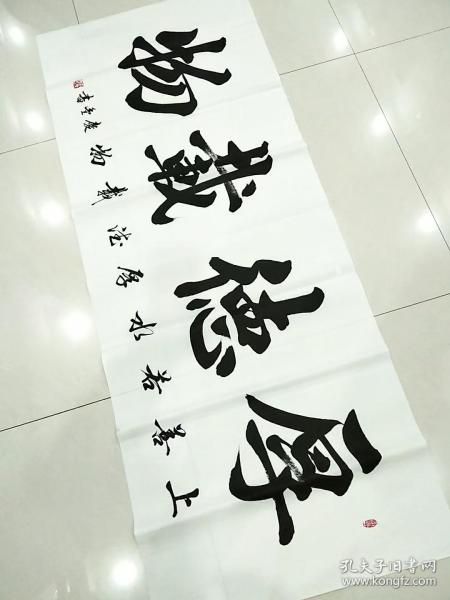 厚德载物
上善若水厚德载物 庆奎书
孔夫子旧书网
www.kongfz.com